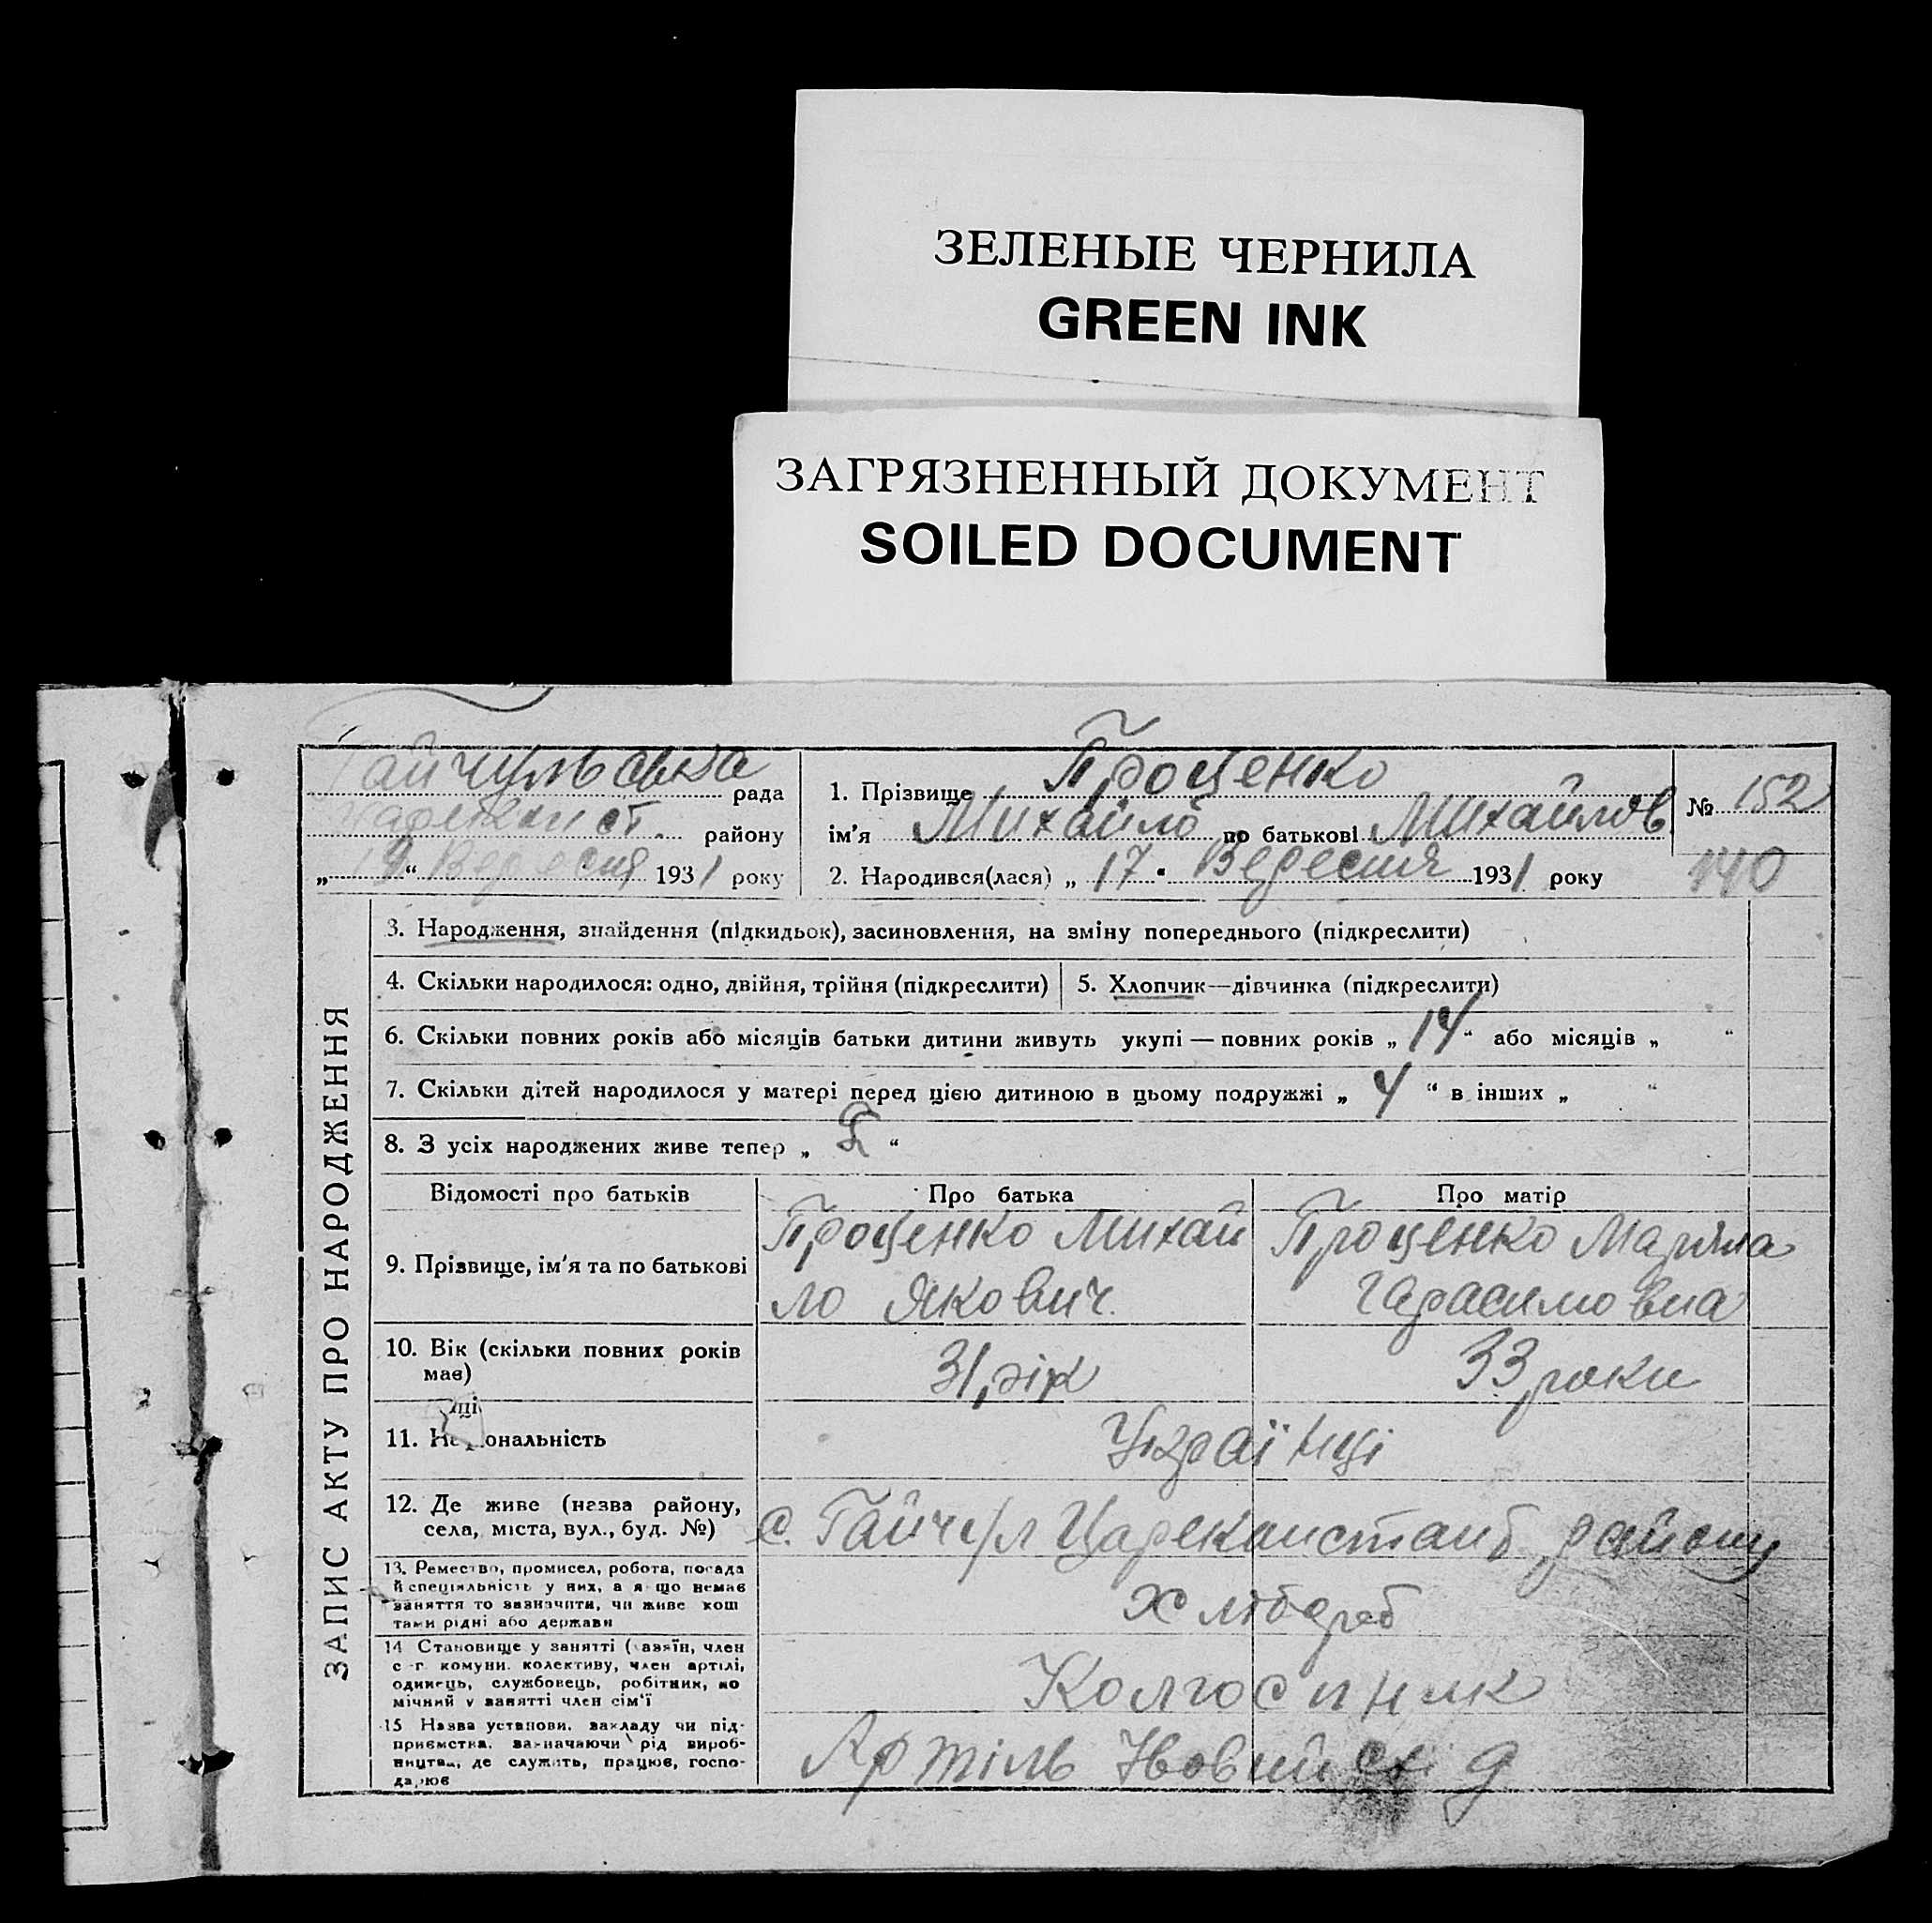 ЗЕЛЕНЫЕ ЧЕРНИЛА
GREEN INK
ЗАГРЯЗНЕННЫЙ ДОКУМЕНТ
SOILED DOCUMENT
ЗАПИС АКТУ ПРО НАРОДЖЕННЯ
Гайчульська рада
району
„19“ Вересня 1931 року
1. Прізвище Проценко
ім'я Михайло по батькові Михайлов
2. Народився(лася) „17 Вересня 1931 року
№ 152
140
3. Народження, знайдення (підкидьок), засиновлення, на зміну попереднього (підкреслити)
4. Скільки народилося: одно, двійня, трійня (підкреслити)
5. Хлопчик—дівчинка (підкреслити)
6. Скільки повних років або місяців батьки дитини живуть укупі — повних років „14“ або місяців „ “
7. Скільки дітей народилося у матері перед цією дитиною в цьому подружжі „4“ в інших „ “
8. З усіх народжених живе тепер „ “
Відомості про батьків
Про батька
Про матір
9. Прізвище, ім'я та по батькові
Проценко Михай
ло Якович
Проценко
Гарасимовна
10. Вік (скільки повних років
має)
31 рік
33 роки
11. Національність
Українці
12. Де живе (назва району,
села, міста, вул., буд. №)
с. Гайчул району
13. Ремество, промисел, робота, посада
й спеціяльність у них, а якщо немає
заняття то зазначити, чи живе кош
тами рідні або держави
Хлібороб
14 Становище у занятті (хазяїн, член
с-г. комуни, колективу, член артілі,
одинець, службовець, робітник, по
мічний у занятті член сім'ї
Колгоспник
15 Назва установи, закладу чи під-
приємства, зазначаючи рід вироб-
ництва, де служить, працює, госпо-
дарює
Артіль Новий